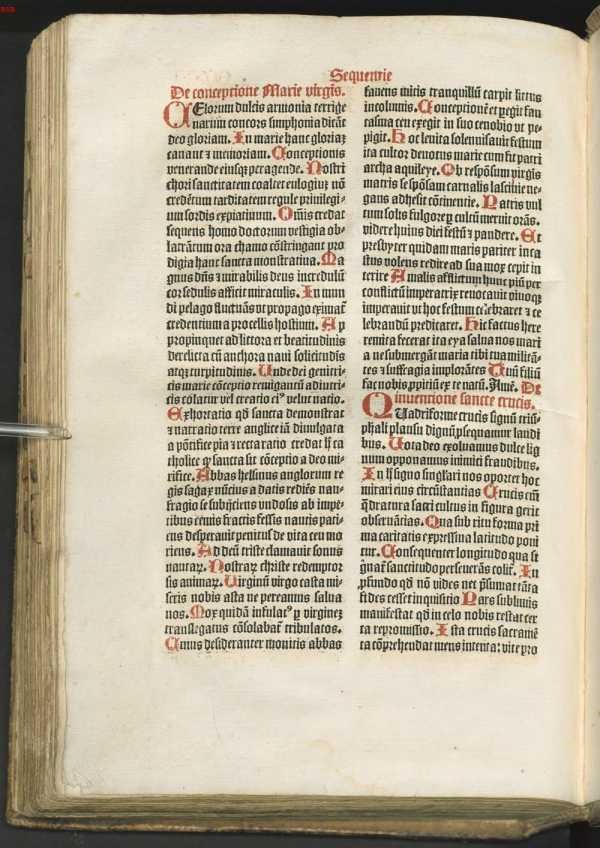 Sequentie
De conceptione Marie virgīs.
CElorum dulcis armonia terrige
narum concors simphonia dicāt
deo gloriam. In marie hanc gloriaȝ
canant ⁊ memoriam. Conceptionis
venerande eiusqȝ peragende. Nostri
chori sanctitatem coalter eulogiuȝ nō
credētum tarditatem regule privilegi-
um sordis expiatiuum. Oīnis credat
sequens homo doctorum vestigia ob-
latrātrum ora chamo cōstringant pro
digia hanc sancta monstratina. Ma
gnus dn̄s ⁊ mirabilis deus incredulū
cor sedulis afficit miraculis. In mun
di pelago fluctuās vt propago eximat̄
credentium a procellis hostium. Ap
propinquet ad littora et beatitudinis
derelicta cū anchora naui solicitudīs
atqȝ turpitudinis. Unde dei genitri-
cis marie cōceptio remigantū adiutri-
cis colatur vel creatio ciꝰ velut natio.
Exhortatio qđ sancta demonstrat
⁊ narratio terre anglice iā diuulgata
a pōtifice pia ⁊ recta ratio credat hͨ ca
tholice qƺ sancta sit cōceptio a deo mi-
rifice. Abbas helsinus anglorum re
gis sagax nūcius a datis rediēs nau-
fragio se subijciens vndosis ab impe-
tibus remis fractis fessis nautis pati-
ens desperauit penitus de vita ceu mo
riens. Ad deū triste clamauit sonus
nautaꝝ. Nostraꝝ christe redemptor
sis animaꝝ. Virginū virgo casta mi-
seris nobis asta ne pereamus salua
nos. Mox quidā infulatꝰ p virgineȝ
translegatus cōsolabat̄ tribulatos.
Cuius desideranter monitis abbas
fauens mitis tranquillū carpit littus
incolumis. Conceptionē et ꝑegit fan
tasma ceu exegit in suo cenobio vt pe-
pigit. Hoc leuita solennisauit festum
ita cultoꝛ deuotus marie cum fit patri
archa aquileye. Ob respōsum virgīs
matris se spōsam carnalis lasciuie ne-
gans adhesit cōtinentie. Natris vul
tum solis fulgoreȝ cultū meruit orās.
videre huius diei festū ⁊ pandere. Et
presbyter quidam maris pariter inca
stus volens redire ad sua mox cepit in
terire A malis afflictum hunc piū per
conflictū imperatrix reuocauit viuoqȝ
imperauit vt hoc festum celebraret ⁊ ce
lebrandū predicaret. Hic factus here
remita fecerat ita eya salua nos mari
a ne submergāt maria tibi tua militā-
tes ⁊ suffragia implorātes Tuū filiū
fac nobis ꝓpiciū ex te natū. Amē. De
inuentione sancte crucis.
QUadriforme crucis signū triū-
phali plausu dignū ꝓsequamur laudi
bus. Uota deo exoluamus dulce lig
num opponamus inimici fraudibus.
In hͦ signo singl̄ari nos oportet hoc
mirari eius circūstantias Crucis cm̄
qđratura sacri cultus in figura gerit
obseruātias. Qua sub rītu forma pri
ma caritatis expressiua latitudo poni
tur. Consequenter longitudo qua si
gn̄at̄ sanctitudo perseuerās colit̄. In
ꝓfundo qđ nō vides nec p̄sumat tāta
fides cesset inquisitio Pars sublimis
manifestat qđ in celo nobis restat cer
ta repromissio. Ista crucis sacramē
ta cōprehendat mens intenta: vite pro